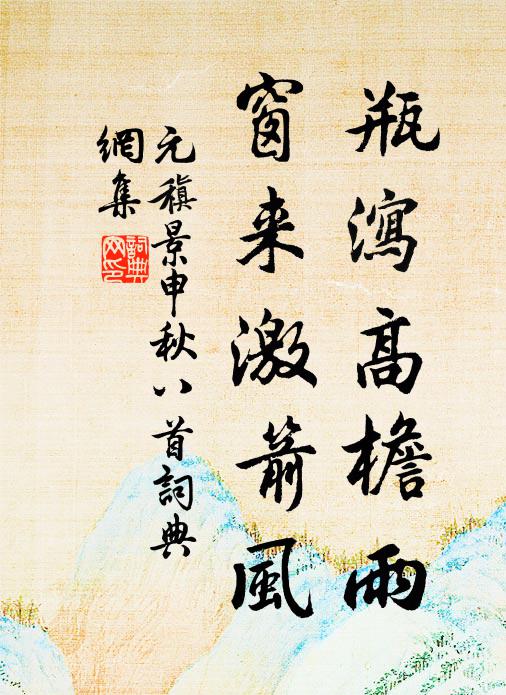 瓶瀉高檐雨
窗来激箭風
元稹景申秋八首詞典
網集
詞典
网印